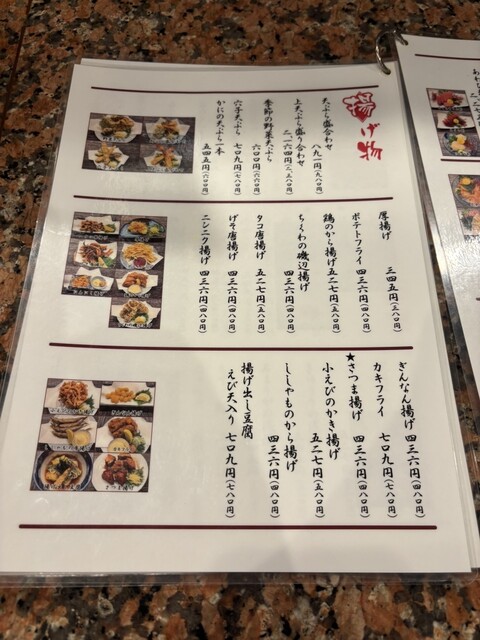 揚げ物
天ぷら盛合わせ 八九一円(九八〇円)
上天ぷら盛り合わせ 二、一六四円(二、三八〇円)
季節の野菜天ぷら 六〇〇円(六六〇円)
穴子天ぷら 七〇九円(七八〇円)
かにの天ぷら一本 五四五円(六〇〇円)
厚揚げ 三四五円(三八〇円)
ポテトフライ 四三六円(四八〇円)
鶏のから揚げ 五二七円(五八〇円)
ちくわの磯辺揚げ 四三六円(四八〇円)
タコ唐揚げ 五二七円(五八〇円)
げそ唐揚げ 四三六円(四八〇円)
ニンニク揚げ 四三六円(四八〇円)
ぎんなん揚げ 四三六円(四八〇円)
カキフライ 七〇九円(七八〇円)
★さつま揚げ 四三六円(四八〇円)
小えびのかき揚げ 五二七円(五八〇円)
ししゃものから揚げ 四三六円(四八〇円)
揚げ出し豆腐
えび天入り 七〇九円(七八〇円)